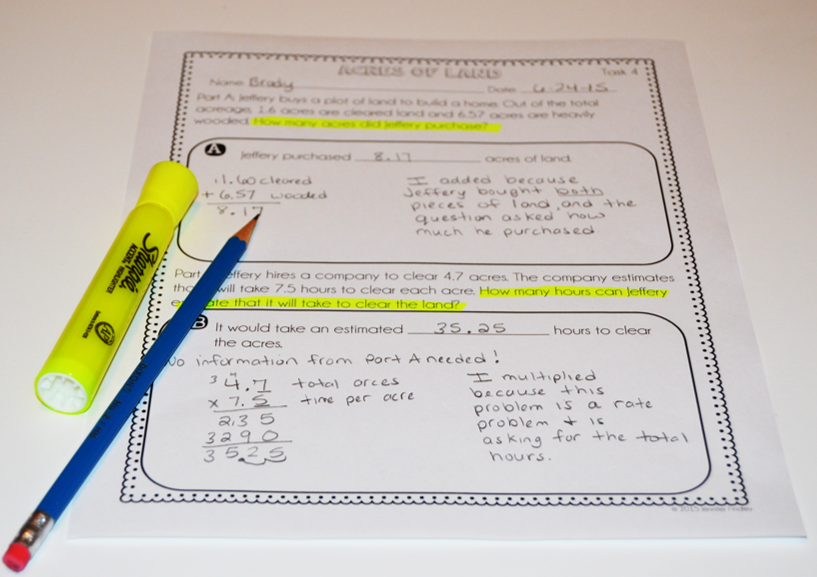 ACRES OF LAND Task 4
Name Brady Date 6-24-15
Part A: Jeffery buys a plot of land to build a home. Out of the total
acreage, 1.6 acres are cleared land and 6.57 acres are heavily
wooded. How many acres did Jeffery purchase?
A Jeffery purchased 8.17 acres of land.
1.60 cleared
+ 6.57 wooded
8.17
I added because
Jeffery bought both
pieces of land, and the
question asked how
much he purchased
Part Jeffery hires a company to clear 4.7 acres. The company estimates
will take 7.5 hours to clear each acre. How many hours can Jeffery
that it will take to clear the land?
B It would take an estimated 35.25 hours to clear
the acres.
No information from Part A needed!
3
4.7 total arces
x 7.5 time per acre
235
3290
35.25
I multiplied
because this
problem is a rate
problem + is
asking for the total
hours.
Sharpie
ACCENT HIGHLIGHTER
© 2015 Jennifer Findley